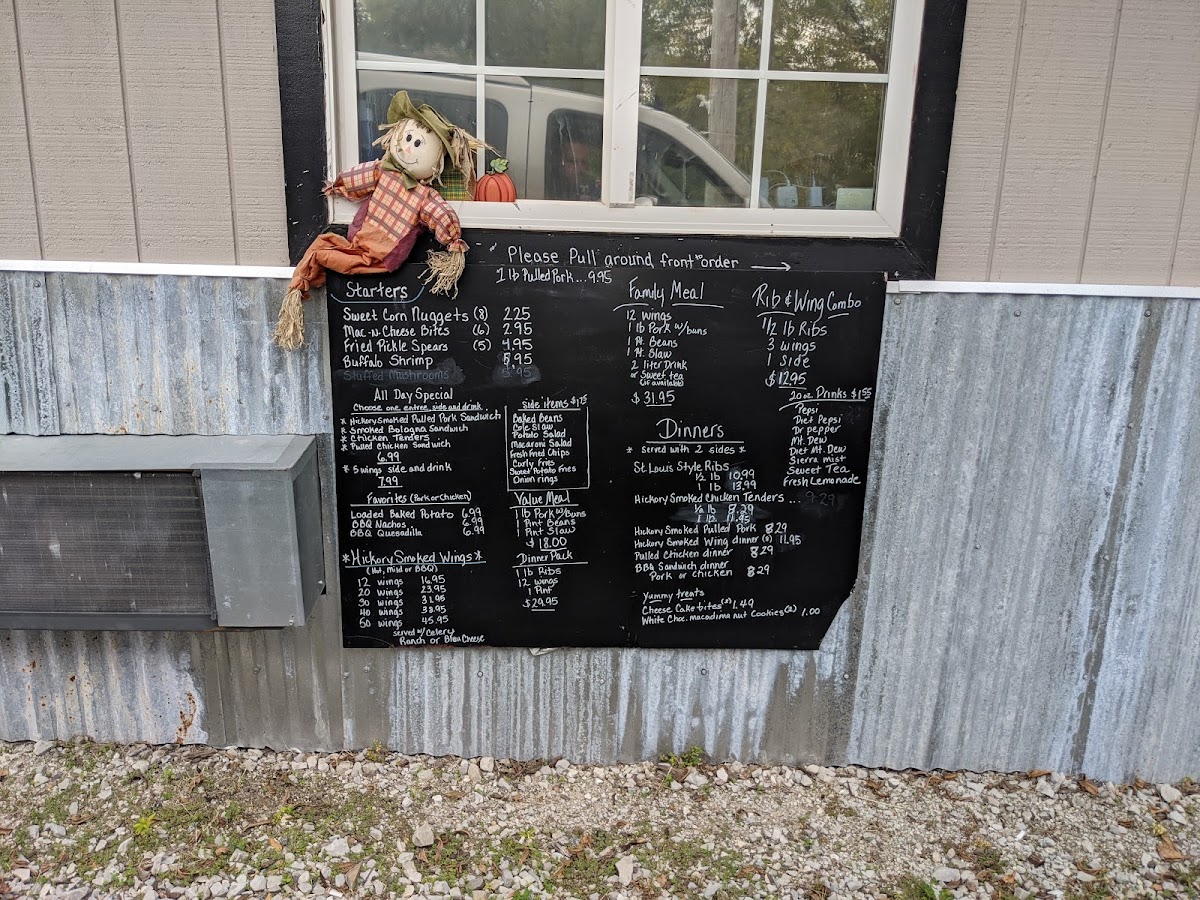 Please Pull around front to order →
1 lb Pulled Pork... 9.95
Starters
Sweet Corn Nuggets (8) 2.25
Mac-n-Cheese Bites (6) 2.95
Fried Pickle Spears (5) 4.95
Buffalo Shrimp 5.95
Stuffed Mushrooms
All Day Special
Choose one entree, side and drink
* Hickory Smoked Pulled Pork Sandwich
* Smoked Bologna Sandwich
* Chicken Tenders
* Pulled Chicken Sandwich
6.99
* 5 wings side and drink
7.99
Favorites (Pork or Chicken)
Loaded Baked Potato 6.99
BBQ Nachos 6.99
BBQ Quesadilla 6.99
*Hickory Smoked Wings*
(Hot, Mild or BBQ)
12 wings 16.95
20 wings 23.95
30 wings 31.95
40 wings 38.95
50 wings 45.95
served w/ Celery
Ranch or Bleu Cheese
Side items $1.75
Baked Beans
Cole Slaw
Potato Salad
Macaroni Salad
Fresh Fried Chips
Curly Fries
Sweet Potato Fries
Onion rings
Value Meal
1 lb Pork w/Buns
1 Pint Beans
1 Pint Slaw
$18.00
Dinner Pack
1 lb Ribs
12 wings
1 Pint
$29.95
Family Meal
12 wings
1 lb Pork w/buns
1 Pt. Beans
1 Pt. Slaw
2 liter Drink
or Sweet tea
(if available)
$31.95
Rib & Wing Combo
1/2 lb Ribs
3 wings
1 side
$12.95
20 oz Drinks $1.55
Pepsi
Diet Pepsi
Dr pepper
Mt. Dew
Diet Mt. Dew
Sierra mist
Sweet Tea
Fresh Lemonade
Dinners
* served with 2 sides *
St Louis Style Ribs
1/2 lb 10.99
1 lb 13.99
Hickory Smoked Chicken Tenders ... 9.29
1/2 lb 8.29
1 lb 11.95
Hickory Smoked Pulled Pork 8.29
Hickory Smoked Wing dinner (8) 11.95
Pulled Chicken dinner 8.29
BBQ Sandwich dinner
Pork or Chicken 8.29
Yummy treats
Cheese Cake bites (3) 1.49
White Choc. macadima nut Cookies (2) 1.00